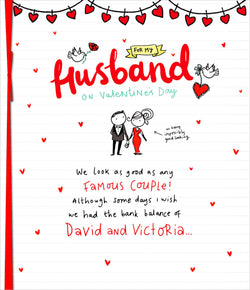 FOR MY
Husband
ON VALENTINE'S DAY
We look as good as any
FAMOUS COUPLE!
Although some days I wish
we had the bank balance of
DAVID AND VICTORIA...